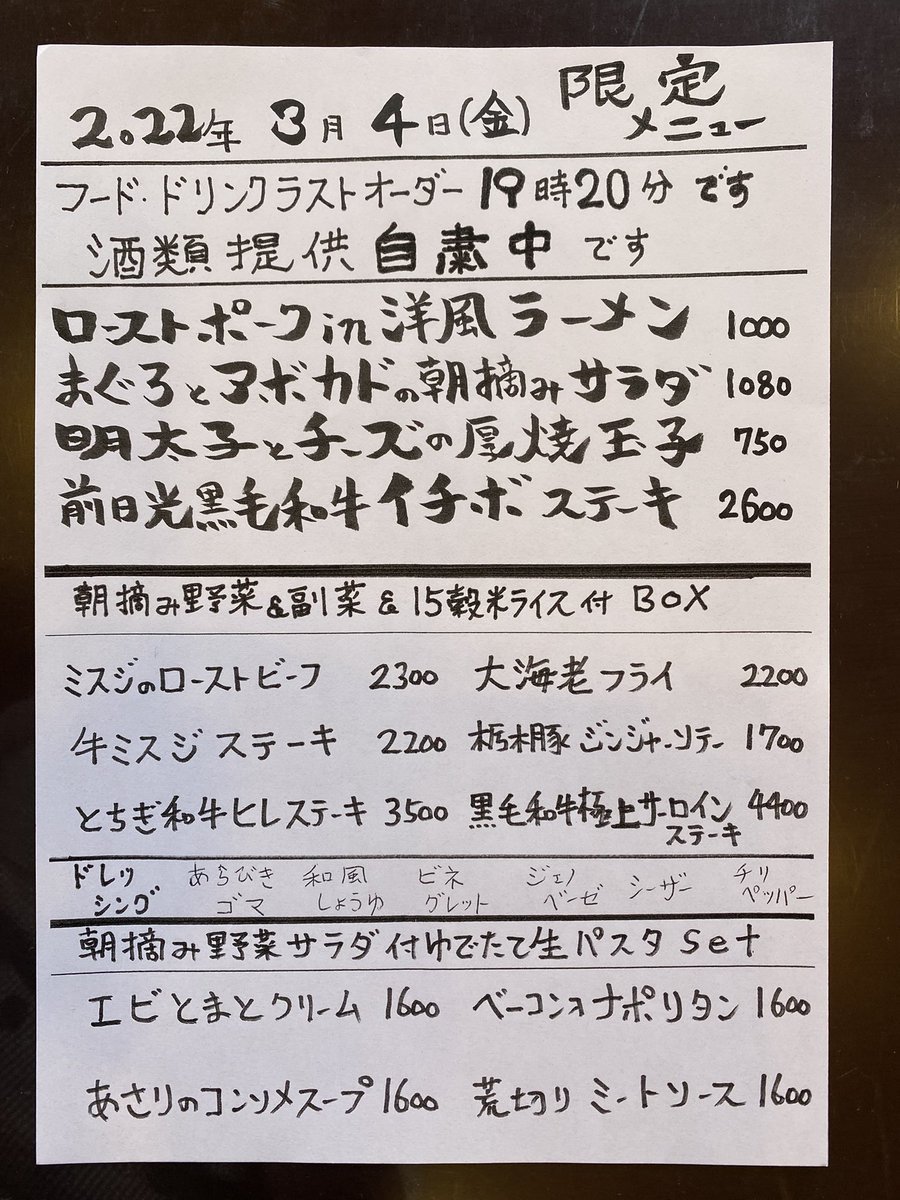 2022年 3月 4日(金) 限定メニュー
フード・ドリンクラストオーダー 19時20分 です
酒類提供 自粛中 です
ローストポークin洋風ラーメン 1000
まぐろとアボカドの朝摘みサラダ 1080
明太子とチーズの厚焼玉子 750
前日光黒毛和牛イチボステーキ 2600
朝摘み野菜&副菜&15穀米ライス付 BOX
ミスジのローストビーフ 2300 大海老フライ 2200
牛ミスジステーキ 2200 栃木豚ジンジャーソテー 1700
とちぎ和牛ヒレステーキ 3500 黒毛和牛極上サーロインステーキ 4400
ドレッシング あらびきゴマ 和風しょうゆ ビネグレット ジェノベーゼ シーザー チリペッパー
朝摘み野菜サラダ付ゆでたて生パスタ Set
エビとまとクリーム 1600 ベーコンのナポリタン 1600
あさりのコンソメスープ 1600 荒切りミートソース 1600